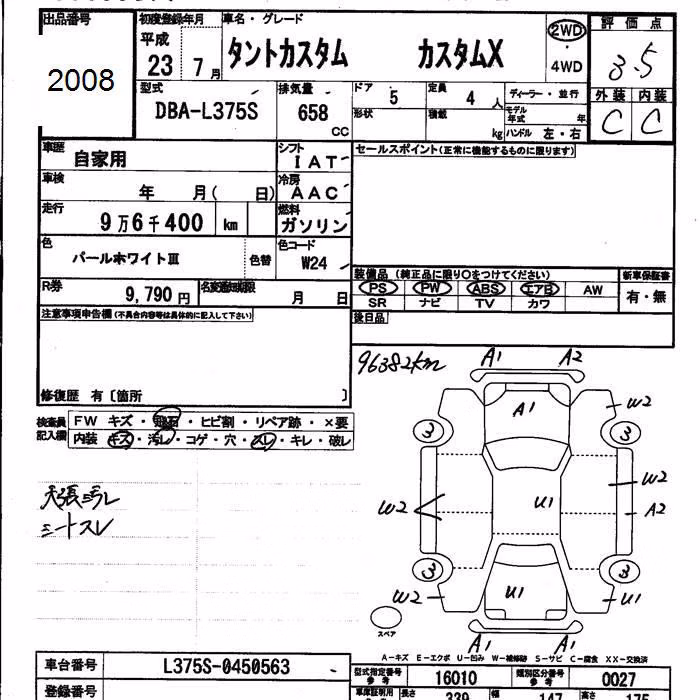 出品番号 初度登録年月 車名・グレード 評価点
2008 平成 23 7月 タントカスタム カスタムX 2WD・4WD 3.5
型式 排気量 ドア 5 定員 4人 ディーラー・並行 外装 内装
DBA-L375S 658 CC 形状 積載 kg モデル年式 年 ハンドル 左・右 C C
車歴 自家用 シフト IAT セールスポイント(正常に機能するものに限ります)
車検 年 月( 日) 冷房 AAC
走行 9万6千400 km 燃料 ガソリン
色 パールホワイトⅢ 色替 色コード W24
装備品(純正品に限り○をつけてください) 新車保証書
R券 9,790円 名変通知期限 月 日 PS PW ABS エアB AW 有・無
SR ナビ TV カワ
注意事項申告欄(不具合内容等は具体的に記入して下さい) 後日品
96382km
修復歴 有〔箇所 〕
検査員記入欄 FW キズ・飛石・ヒビ割・リペア跡・×要
内装 キズ・汚レ・コゲ・穴・スレ・キレ・破レ
天張汚レ
シートスレ
A1 A2
A1 W2
3 3
W2 U1 W2
A2
3 3
W2 U1 U1
スペア
A1 A1
A-キズ E-エクボ U-凹み W-補修跡 S-サビ C-腐食 XX-交換済
車台番号 L375S-0450563 型式指定番号 16010 類別区分番号 0027
登録番号 車庫証明用参考 長さ 339 幅 147 高さ 175